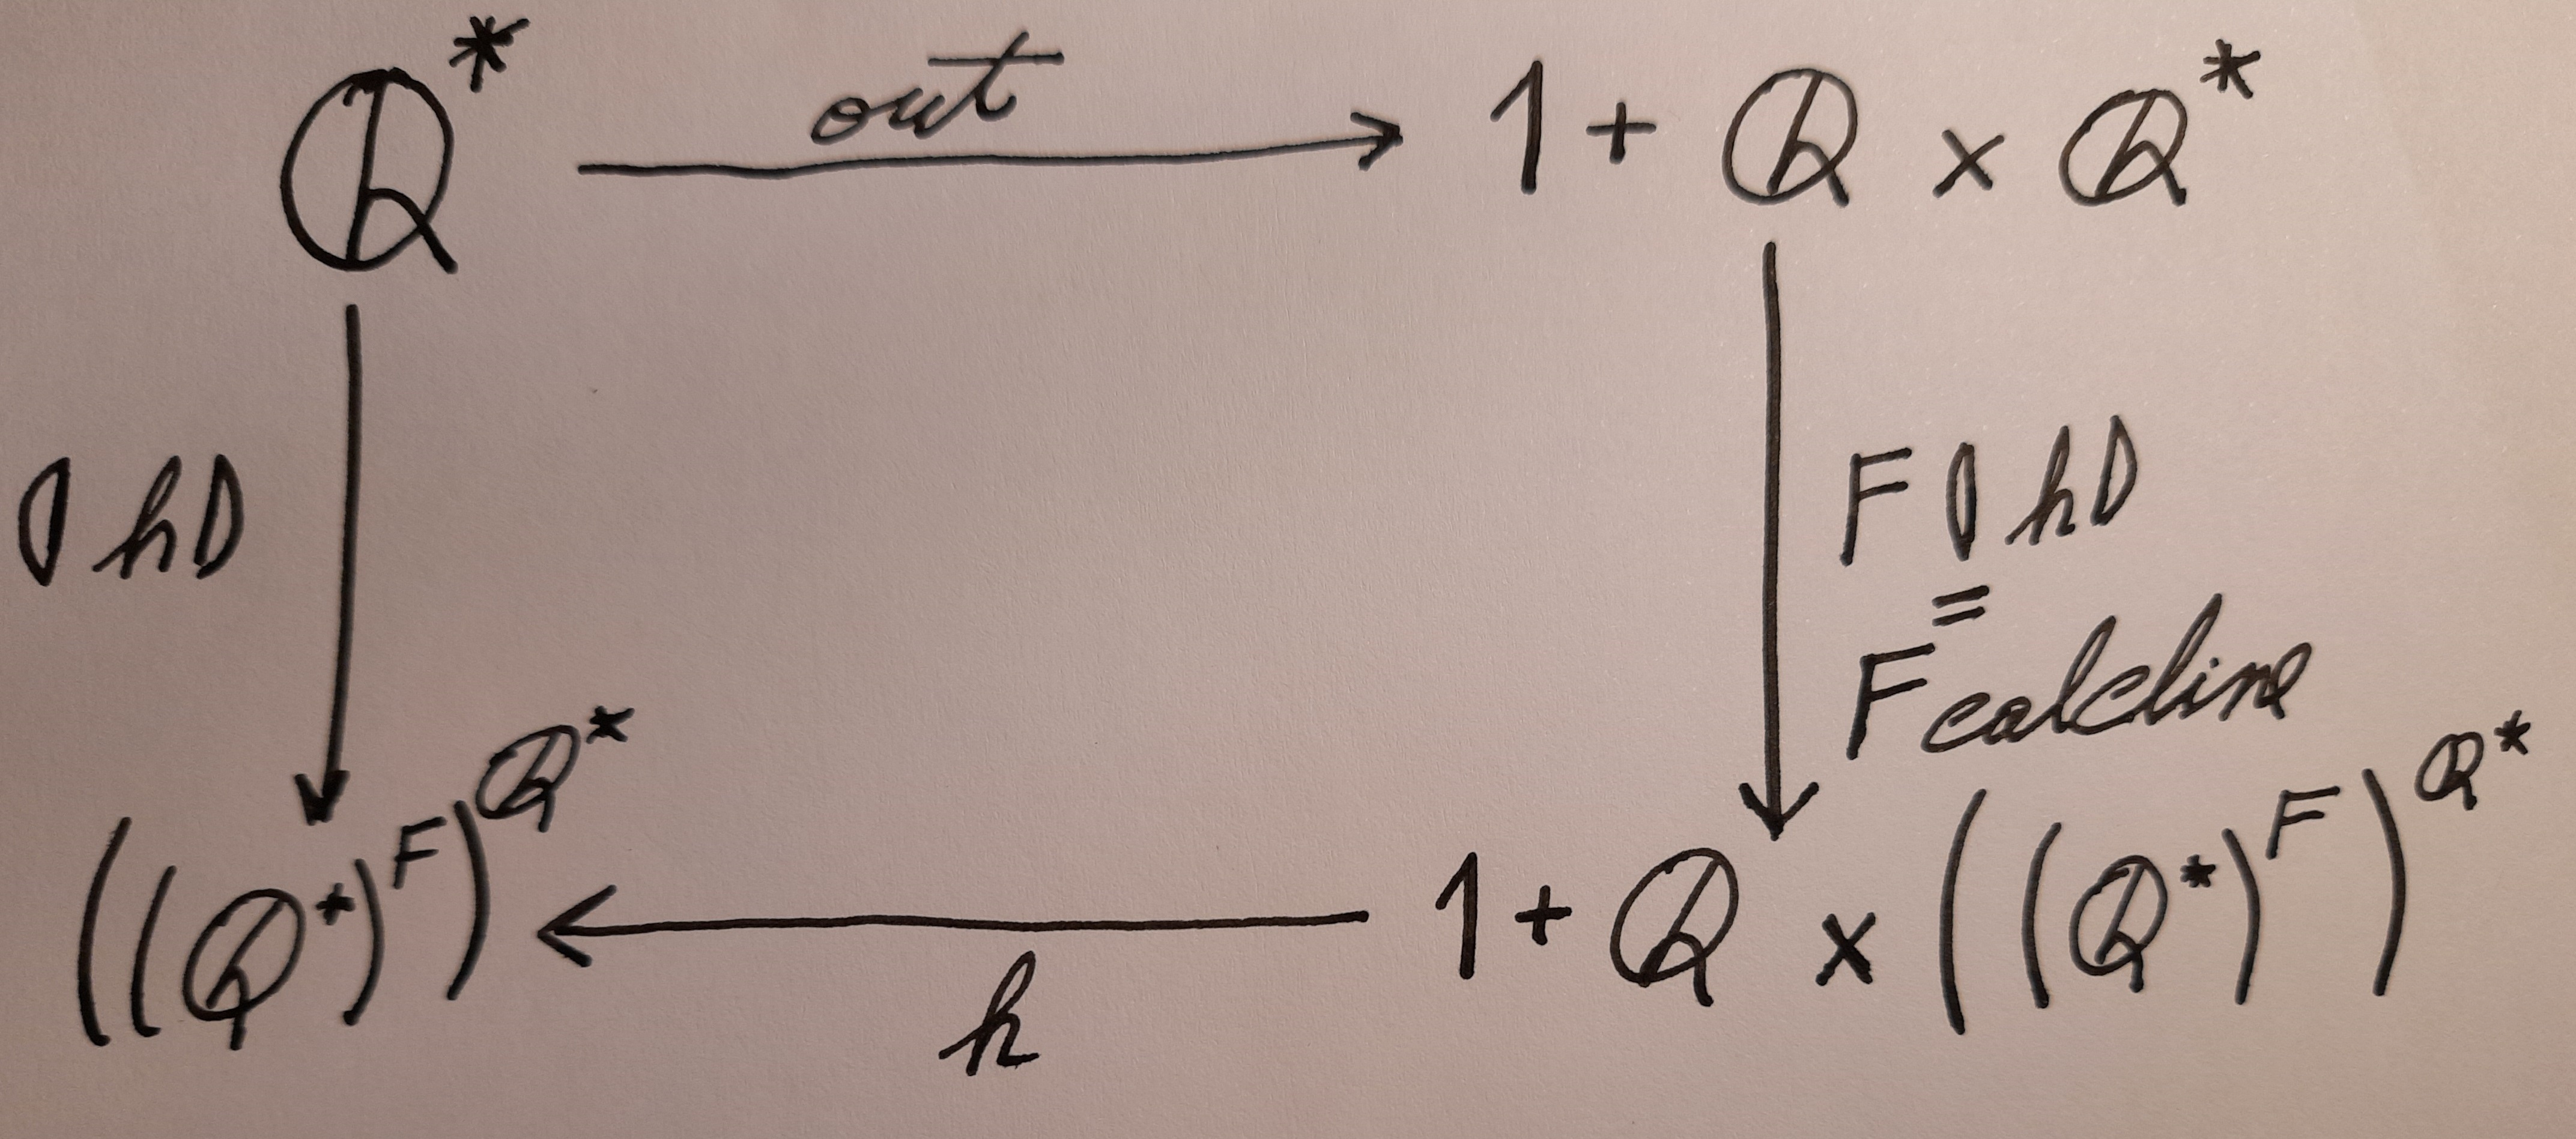 ℚ* out 1 + ℚ × ℚ*
⦇h⦈ F⦇h⦈
=
F calcline
((ℚ*)^F)^ℚ* 1 + ℚ × ((ℚ*)^F)^ℚ*
h